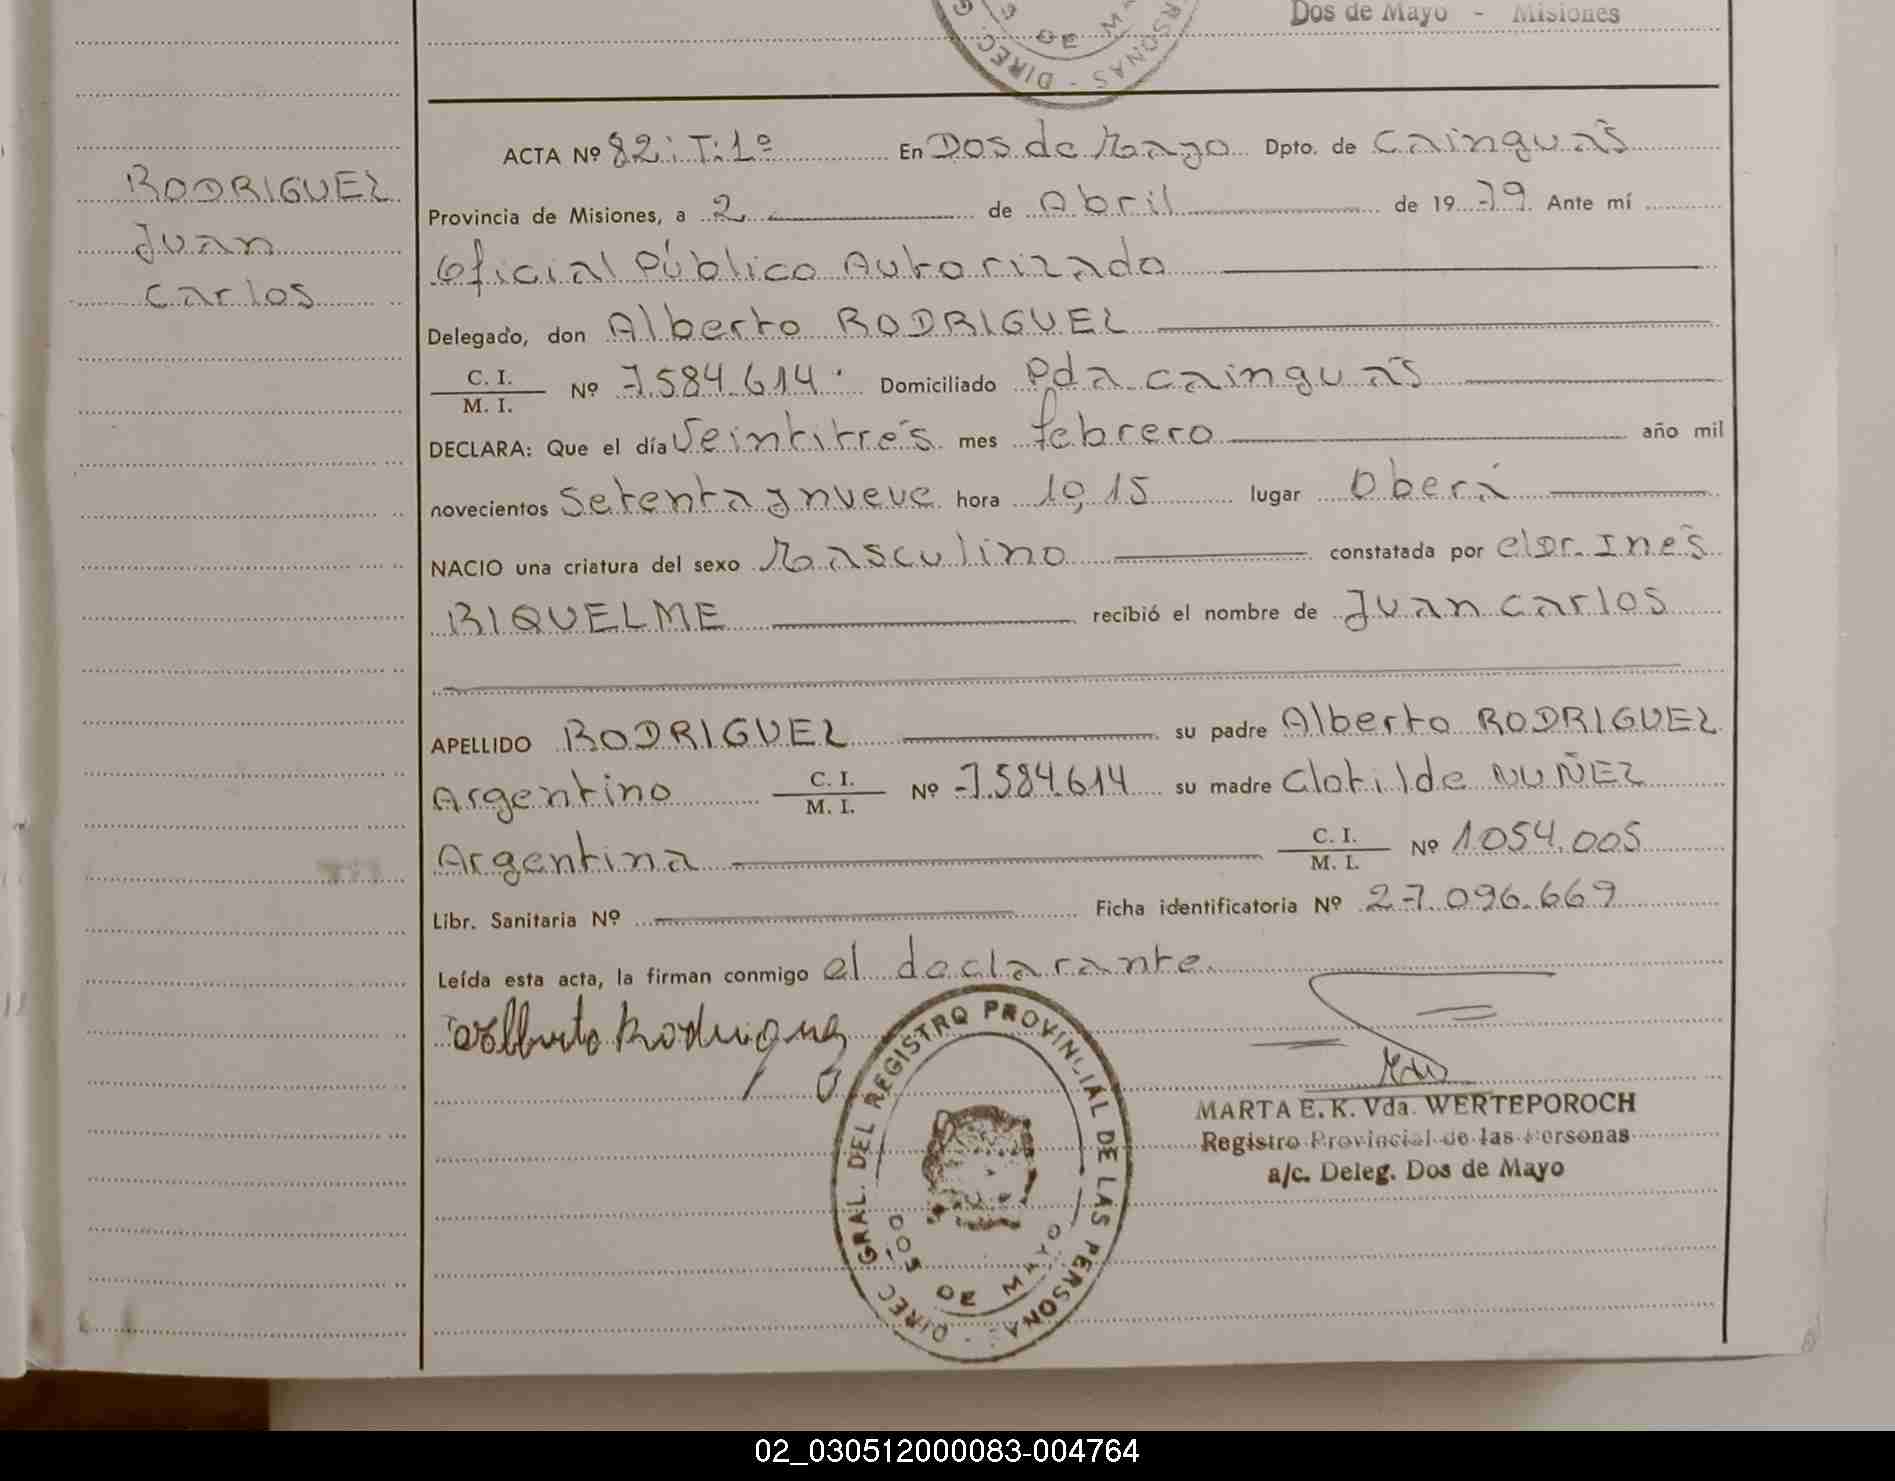 Dos de Mayo - Misiones
DIREC
RODRIGUEZ
Juan
Carlos
ACTA Nº 82: T: 1º En Dos de Mayo Dpto. de Cainguás
Provincia de Misiones, a 2 de Abril de 19 79 Ante mí
Oficial Público Autorizado
Delegado, don Alberto RODRIGUEZ
C. I.
M. I. Nº 7.584.614. Domiciliado Pda Cainguás
DECLARA: Que el día Veintitrés mes febrero año mil
novecientos Setenta y nueve hora 10,15 lugar Oberá
NACIO una criatura del sexo Masculino constatada por el Dr. Inés
RIQUELME recibió el nombre de Juan Carlos
APELLIDO RODRIGUEZ su padre Alberto RODRIGUEZ
Argentino C. I.
M. I. Nº 7.584.614 su madre Clotilde NUÑEZ
Argentina C. I.
M. I. Nº 1.054.005
Libr. Sanitaria Nº Ficha identificatoria Nº 27.096.669
Leída esta acta, la firman conmigo el declarante.
Alberto Rodriguez
DIREC GRAL. DEL REGISTRO PROVINCIAL DE LAS PERSONAS
DOS DE MAYO
MARTA E. K. Vda. WERTEPOROCH
Registro Provincial de las Personas
a/c. Deleg. Dos de Mayo
02_030512000083-004764